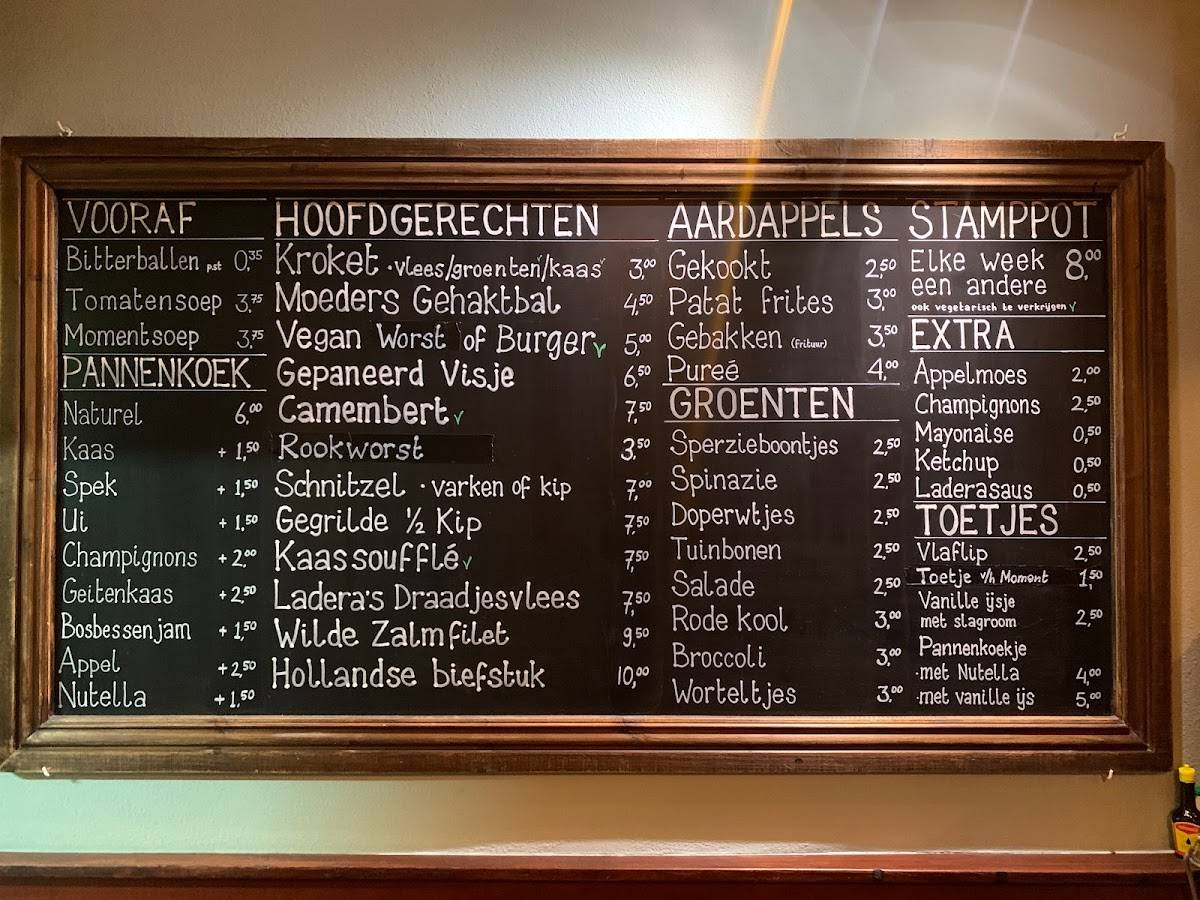 VOORAF
Bitterballen p.st 0,35
Tomatensoep 3,75
Momentsoep 3,75
PANNENKOEK
Naturel 6,00
Kaas + 1,50
Spek + 1,50
Ui + 1,50
Champignons + 2,00
Geitenkaas + 2,50
Bosbessenjam + 1,50
Appel + 2,50
Nutella + 1,50
HOOFDGERECHTEN
Kroket · vlees/groenten√/kaas√ 3,00
Moeders Gehaktbal 4,50
Vegan Worst of Burger √ 5,00
Gepaneerd Visje 6,50
Camembert √ 7,50
Rookworst 3,50
Schnitzel · varken of kip 7,00
Gegrilde ½ Kip 7,50
Kaassoufflé √ 7,50
Ladera's Draadjesvlees 7,50
Wilde Zalmfilet 9,50
Hollandse biefstuk 10,00
AARDAPPELS
Gekookt 2,50
Patat frites 3,00
Gebakken (frituur) 3,50
Pureé 4,00
GROENTEN
Sperzieboontjes 2,50
Spinazie 2,50
Doperwtjes 2,50
Tuinbonen 2,50
Salade 2,50
Rode kool 3,00
Broccoli 3,00
Worteltjes 3,00
STAMPPOT
Elke week 8,00
een andere
ook vegetarisch te verkrijgen √
EXTRA
Appelmoes 2,00
Champignons 2,50
Mayonaise 0,50
Ketchup 0,50
Laderasaus 0,50
TOETJES
Vlaflip 2,50
Toetje v/h Moment 1,50
Vanille ijsje
met slagroom 2,50
Pannenkoekje
·met Nutella 4,00
·met vanille ijs 5,00